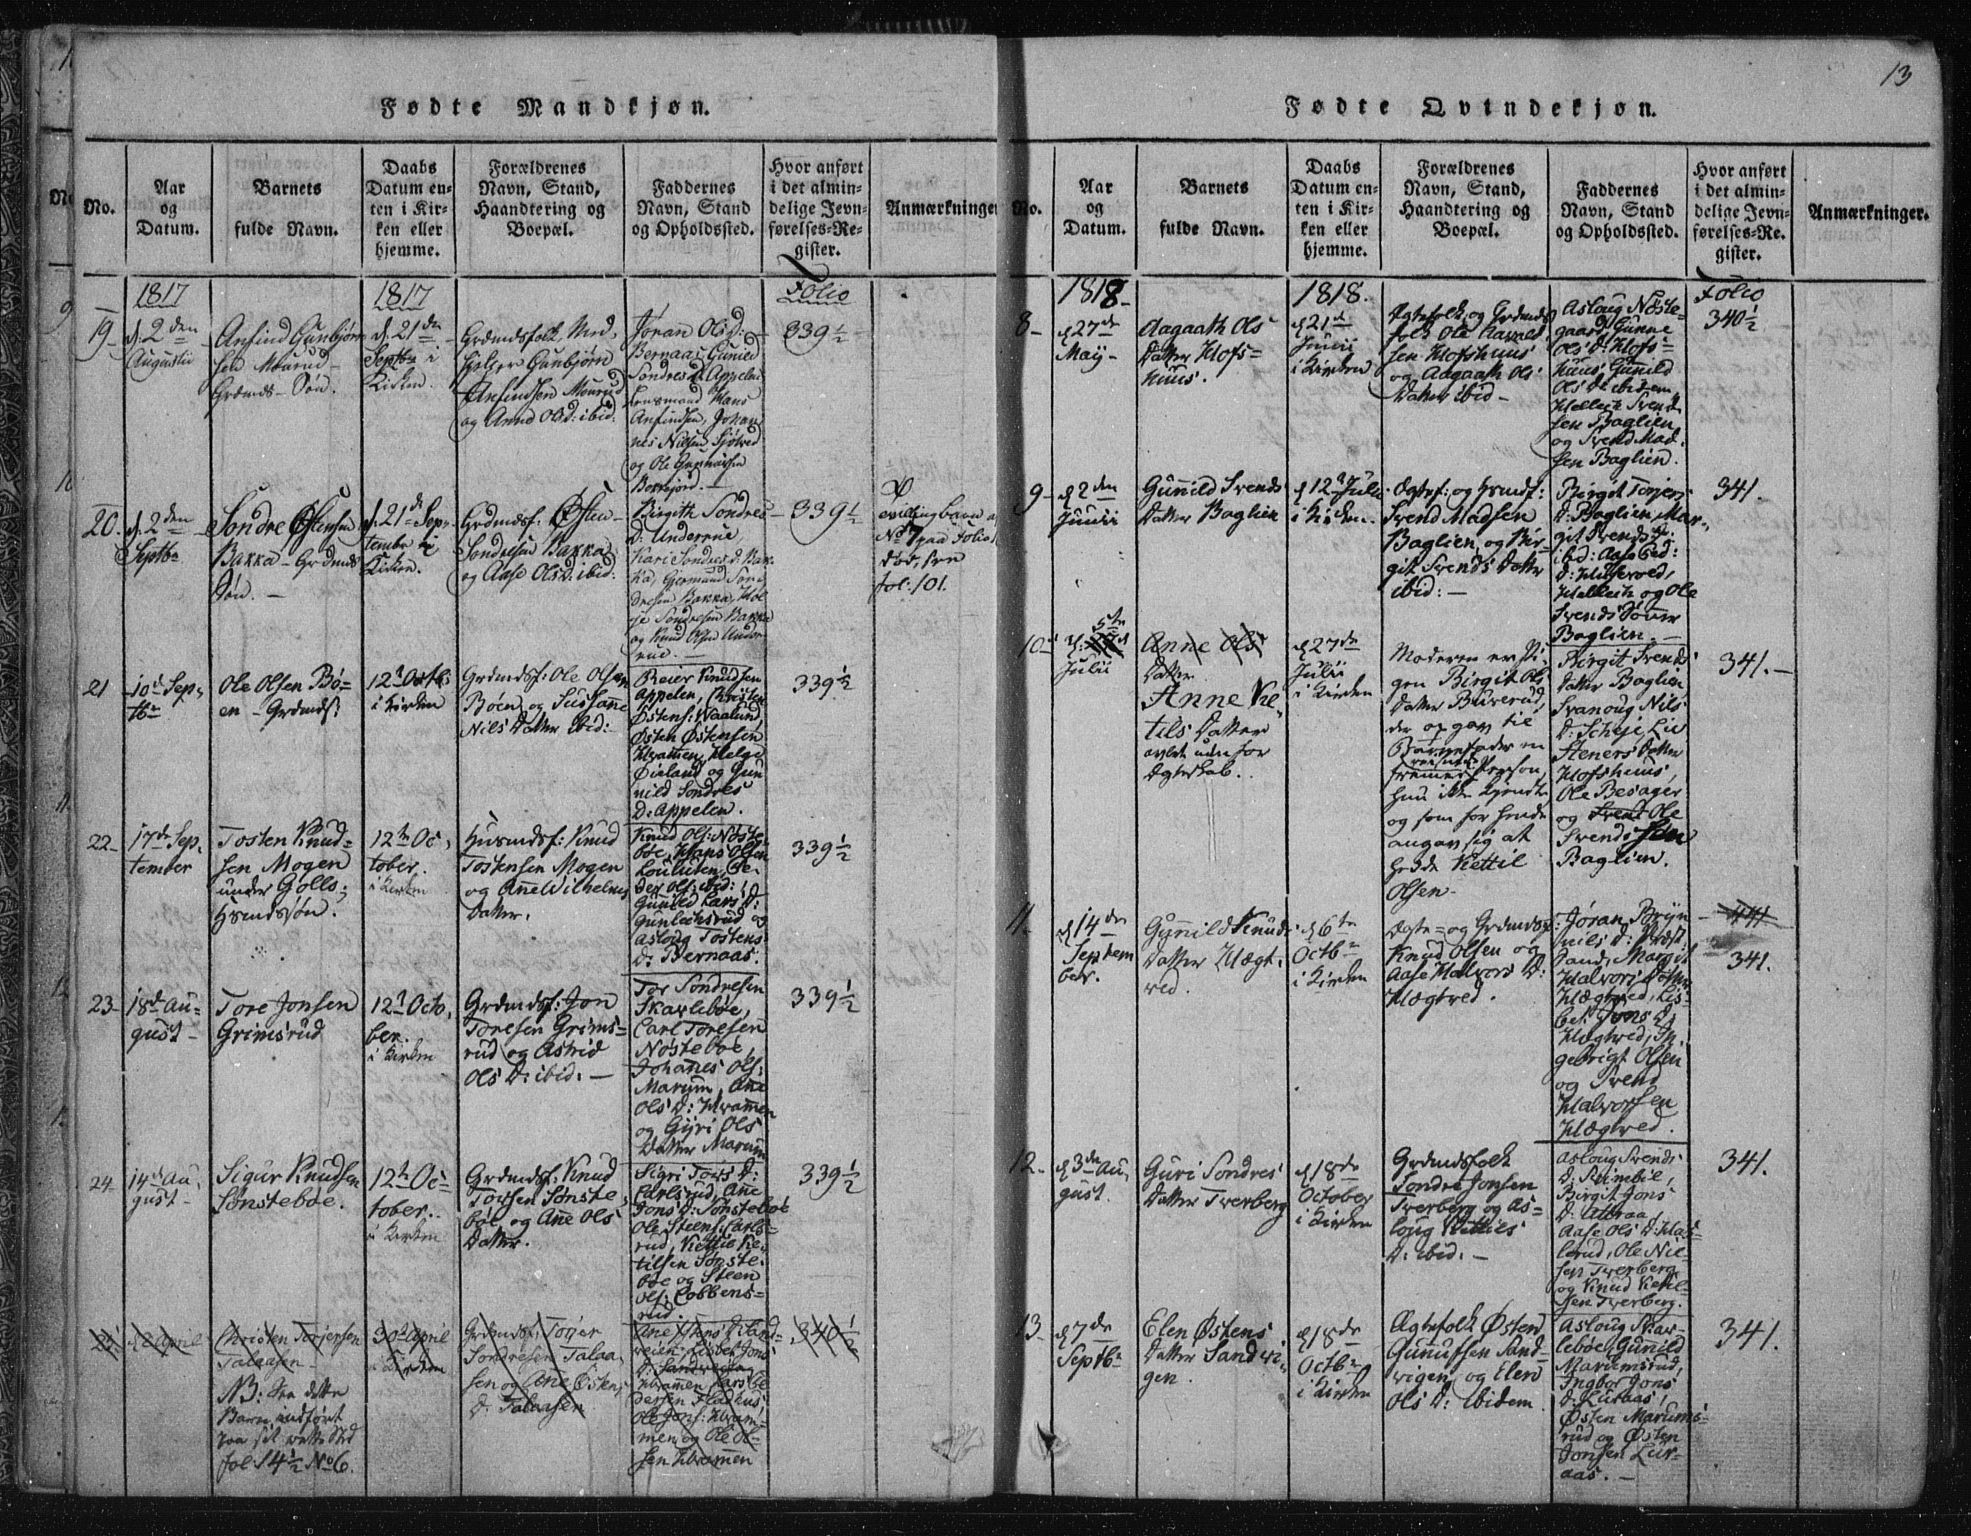 13
Fødte Mandkjøn.
No.
Aar
og
Datum.
Barnets
fulde Navn.
Daabs
Datum en-
ten i Kir-
ken eller
hjemme.
Forældrenes
Navn, Stand,
Haandtering og
Boepæl.
Faddernes
Navn, Stand
og Opholdssted.
Hvor anført
i det almin-
delige Jevn-
førelses-Re-
gister.
Anmærkninger
1817
1817
Folio
19.
d. 2den
Augustii
Anfind Gunbjørn
sen Mourud
Grdmds Søn.
d. 21de
Septbr i
Kirken.
Gunbjørn
Anfindsen Mourud
og Anna Olsd: ibid.
Jøran Olsd:
Bernaas, Gunild
Sondresd. Appelen
Lensmand Hans
Anfindsen, Johan
nes Nielsen
og Ole Gunnarsen
339 1/2
20.
d. 2den
Septbr
Sondre Østensen
Bakka Grdmds
Søn.
d. 21de Sep-
tember i
Kirken.
Grdmdsf. Østen
Sondresen Bakka
og Aase Olsd: ibid:
Birgith Sondres
D: Underrue,
Kari Sondresd: Bak
ka, Gjermund Son
dresen Bakka, Hol
je Sondresen Bakka
og Knud Olsen Under
rue.
339 1/2
No 7 paa Folio
død, see
fol. 101.
21
10d Sep-
tbr
Ole Olsen Bø-
en Grdmds:
12t Octb:
i Kirken
Grdmdsf: Ole Olsen
Bøen og Sussane
Nils Datter ibid:
Reier Knudsen
Appelen, Christen
Østens: Waalund,
Østen Østensen
Hvammen, Helge
Øieland og Gun
nild Sondres
D: Appelen.
339 1/2
22
17de Sep-
tember
Tosten Knud-
sen Mogen
under Golls
Hsmdssøn.
12te Oc-
tober.
i Kirken
Husmdsf: Knud
Tostensen Mogen
og Anne Wilhelms
Datter.
Knud Ols: Nøste-
bøe, Hans Olsen
Gunild Lars D:
Gunleiksrud og
Asloug Tostens
D: Bernaas.
339 1/2
23
18d Au-
gust
Tore Jonsen
Grimsrud
12t Octo-
ber.
i Kirken
Grdmdsf: Jon
Toresen Grims-
rud og Astrid
Ols D: ibid:
Tor Sondresen
Skarlebøe,
Carl Toresen
Nøstebøe,
Johanes Ols:
Marum, Ane
Ols D: Hvammen
og Gijri Ols
Datter Marum
339 1/2
24
14d Au-
gust
Sigur Knudsen
Sønstebøe.
12te Oc-
tober.
i Kirken
Grdmdsf: Knud
Torsen Sønste-
bøe og Ane Ols
Datter.
Sigri Tors D:
Carlsrud, Ane
Jons D: Sønstebøe
Ole Steens: Carls-
rud, Kettil Ke-
tilsen Sønste-
bøe og Steen
Ols: Cobbens-
rud.
339 1/2
25
d 2 April
Christen Torjersen
Talaasen
NB: See dette
Barn indført
paa sit rette Sted
fol 14 1/2 No 6.
30te April
i Kirken
Grdmdsf: Torjer
Sondresen Talaa-
sen og Ane Østens
D: Talaasen.
D: Sandvigen
Hvammen, Lars Pe
dersen Fladhus
Ole Jons: Hvam-
men og Ole Ol-
sen Hvammen
340 1/2
Fødte Qvindekjøn.
No.
Aar
og
Datum.
Barnets
fulde Navn.
Daabs
Datum en-
ten i Kir-
ken eller
hjemme.
Forældrenes
Navn, Stand,
Haandtering og
Boepæl.
Faddernes
Navn, Stand
og Opholdssted.
Hvor anført
i det almin-
delige Jevn-
førelses-Re-
gister.
Anmærkninger.
1818
1818.
Folio
8
d 27de
Maij
Aagaath Ols
Datter Hofs-
huus.
d 21d
Junii
i Kirken
Egtefolk og Grdmds
folk Ole Aavald
sen Hofshuus
og Aagaath Ols
Datter ibid
Asloug Nøste-
gaard, Gunne
Ols D: Hofs-
huus, Gunild
Ols D: ibidem
Helleik Svend
sen Baglien
og Svend Mad-
sen Baglien.
340 1/2
9
d 2den
Junii
Gunild Svends
Datter Baglien
d 12t Julii
i Kirken.
Egtef: og Hsmdsf:
Svend Madsen
Baglien og Bir-
git Svends Datter
ibid:
Birgit Torjers
D: Baglien, Mar-
git Svends D:
ibid: Aase
Helleik og Ole
Svends Sønner
Baglien.
341.
10
d: 5te
Julii
Anne Ols
Datter
Anne Ke-
tils Datter
avlet uden for
Egteskab.
d 27de
Julii
i Kirken
Moderen er Pi-
gen Birgit Ols
Datter Buverud,
der opgav til
Barnefader en
reisende
fremmed Person,
hun ikke kjendte
og som for hende
angav sig at
hede Kettil
Olsen.
Birgit Svends
Datter Baglien,
Svanoug Nils
Steners Datter
Hofshuus,
Ole Besager
og Svend Ole
Svendssen
Baglien.
341.
11.
d 14de
Septem
ber.
Gunild Knuds
Datter Hægt-
ved.
d 6te
Octbr
i Kirken
Egte- og Grdmdsf:
Knud Olsen og
Aase Halvors D:
Hægtved.
Jøran Bryn
nils D: Præst
sand, Margit
Halvors Datter
Hægtved, Lis-
bet Jons D,
Hægtved, In-
gebrigt Olsen
og Svend
Halvorsen
Hægtved.
441
341.
12.
d 3den Au-
gust.
Guri Sondres
Datter Tverberg
d 18de
October
i Kirken
Grdmdsfolk
Sondre Jonsen
Tverberg og As-
loug Kettils
D: ibid.
Asloug Svends
D: Rambøl,
Birgit Jons
D: Attraa,
Aase Ols D: Has-
lerud, Ole Niel-
sen Tverberg
og Knud Kettil-
sen Tverberg.
341.
13
d 7de
Septbr
Elen Østens
Datter Sandvi-
gen.
d 18de
Octbr
i Kirken
Egtefolk Østen
Gunulfsen Sand-
vigen og Elen
Ols D: ibidem
Asloug Skar-
lebøe, Gunild
Marumsrud,
Ingbor Jons
D: Luraas,
Østen Marums-
rud og Østen
Jonsen Lur-
aas.
341.